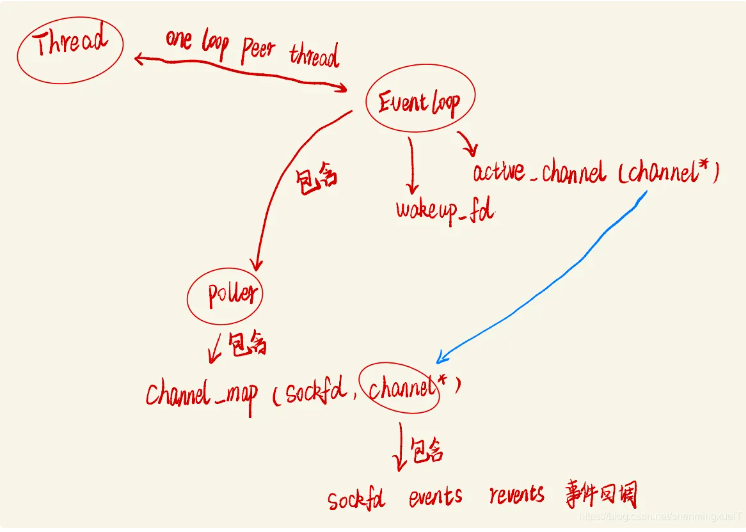 Thread
one loop peer thread
EventLoop
包含
active_channel (channel*)
wakeup_fd
poller
包含
channel_map (sockfd, channel*)
包含
sockfd events revents 事件回调